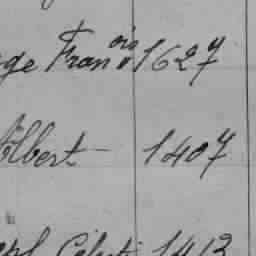 ge Franois 1627
Albert 1407
1413